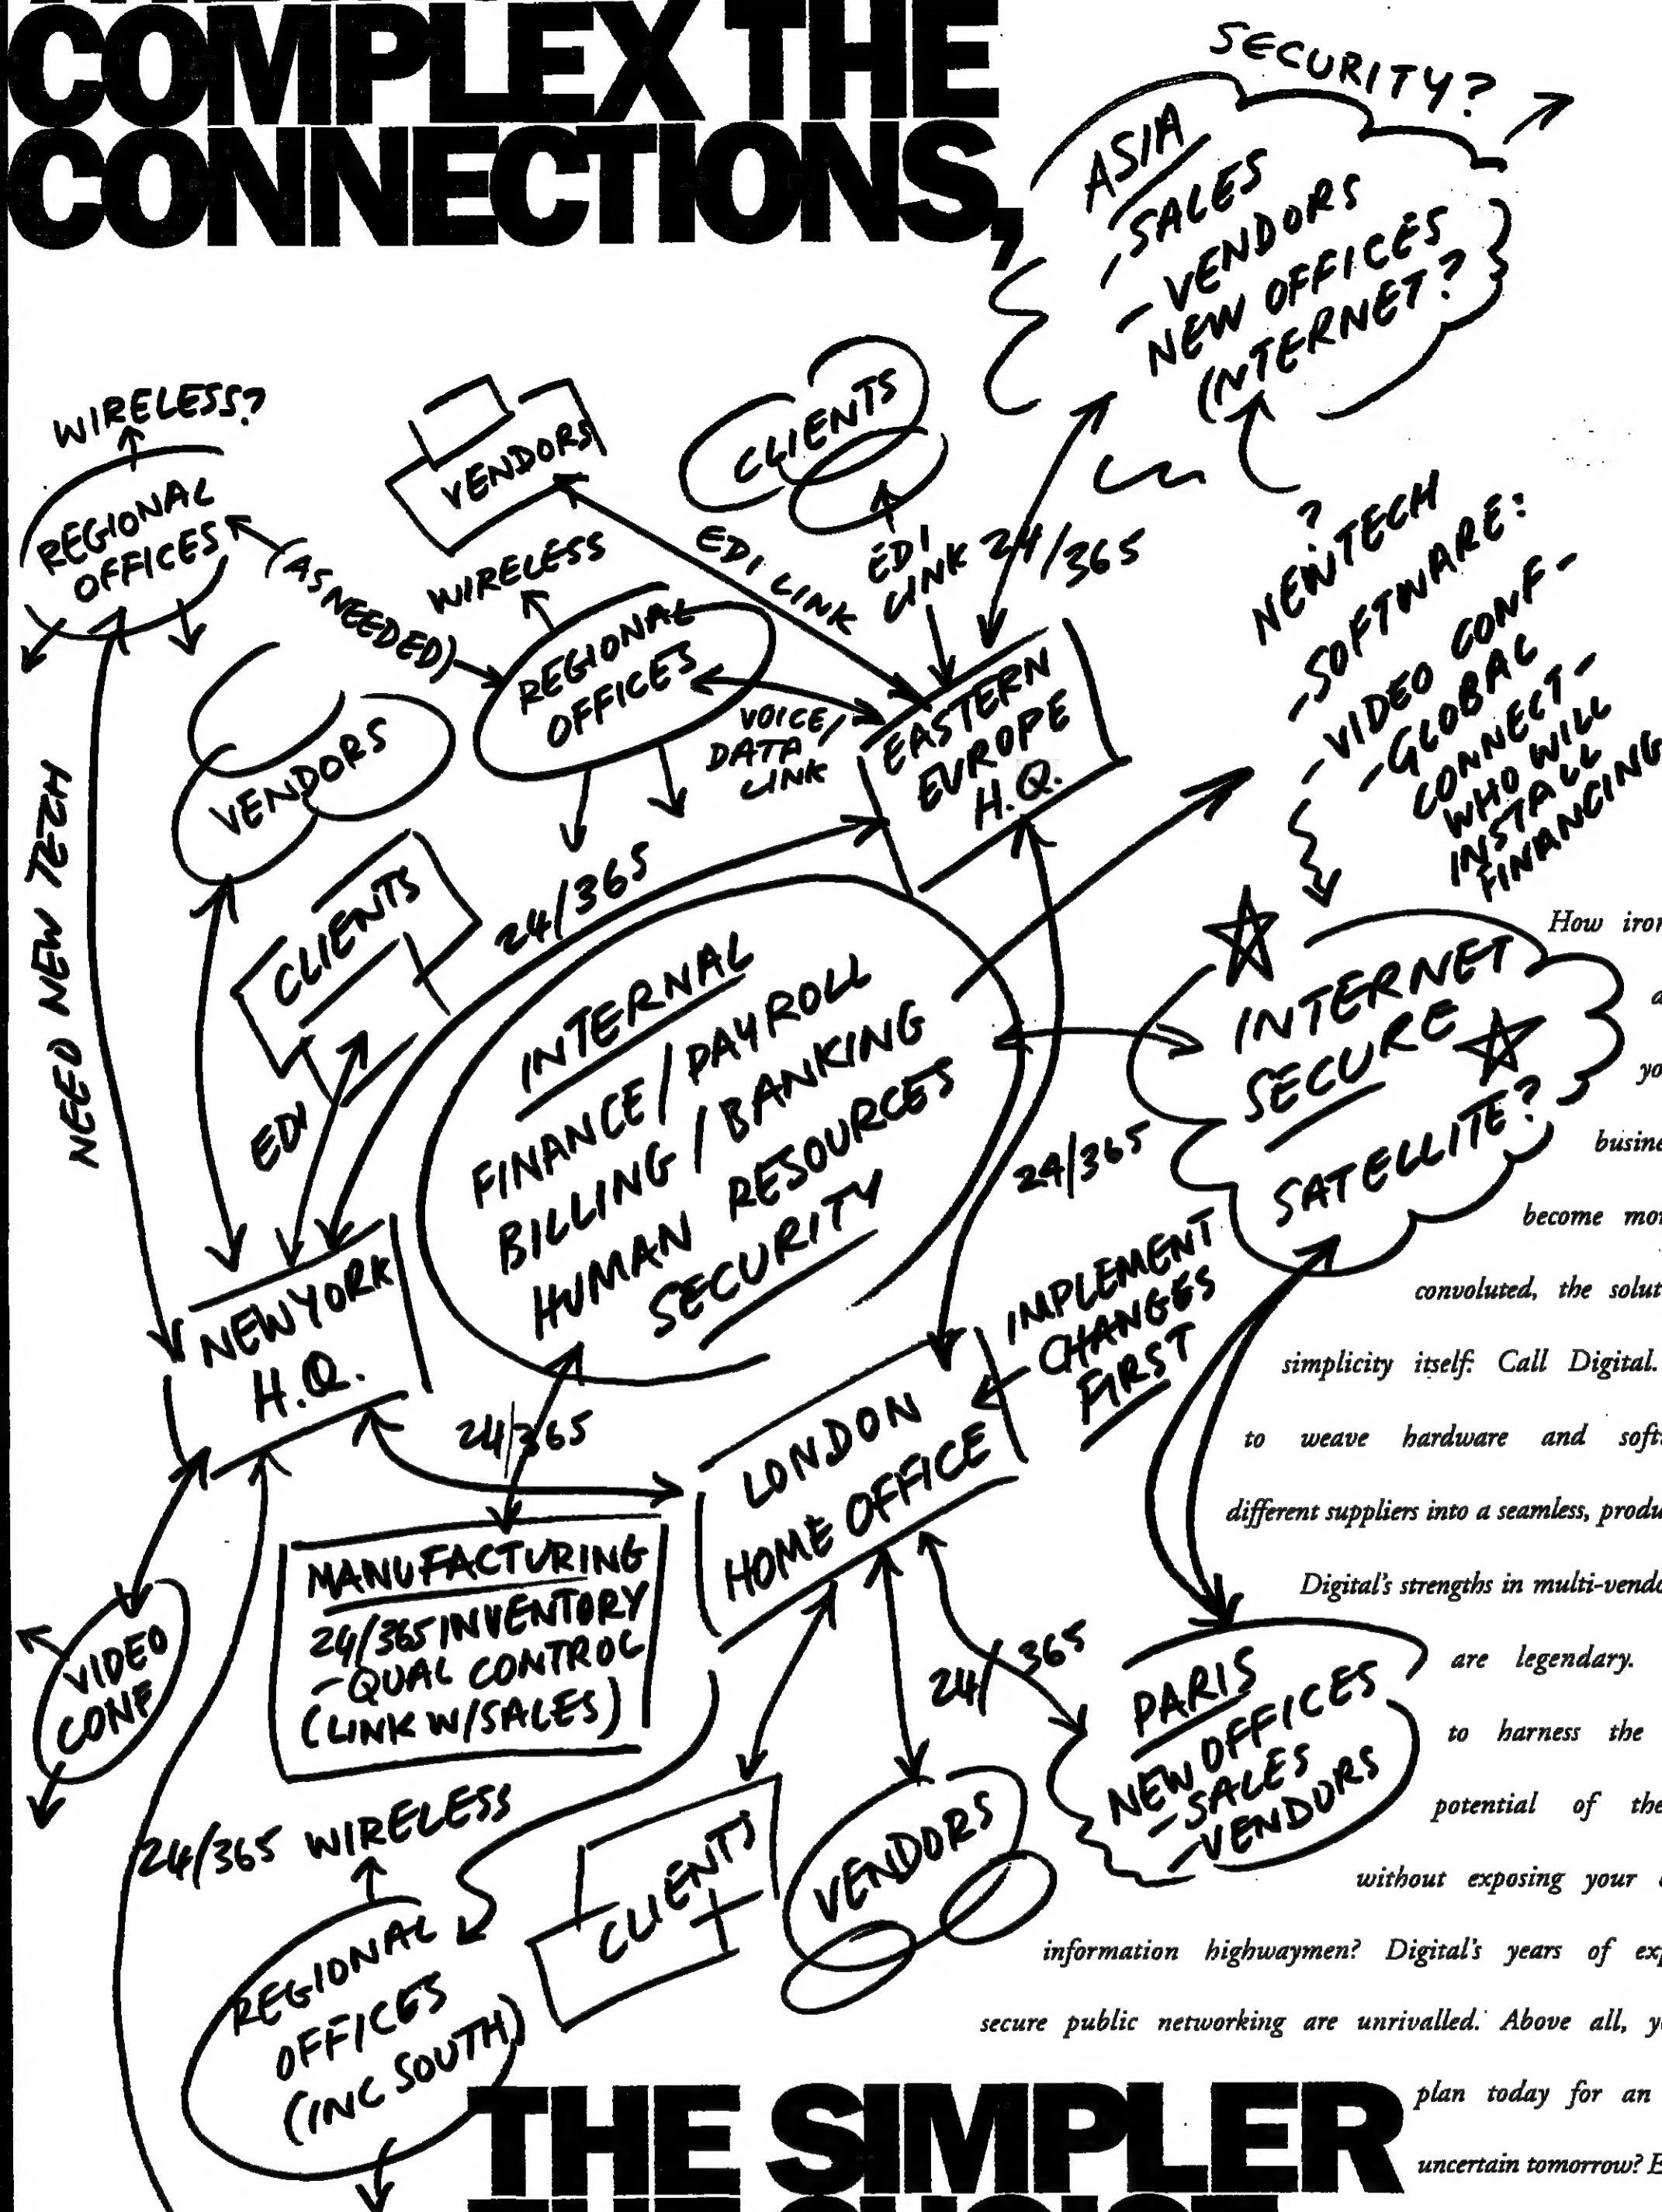 COMPLEX THE
CONNECTIONS,
SECURITY?
ASIA
-SALES
-VENDORS
NEW OFFICES
INTERNET?
WIRELESS?
REGIONAL
OFFICES
(AS NEEDED)
VENDORS
CLIENTS
EDI LINK
EDI
LINK
24/365
WIRELESS
REGIONAL
OFFICES
VOICE/
DATA
LINK
EASTERN
EUROPE
H.Q.
?
NEWTECH
-SOFTWARE:
-VIDEO CONF-
-GLOBAL
CONNECT-
WHO WILL
INSTALL
FINANCING
NEED NEW TECH
VENDORS
CLIENTS
EDI
24/365
INTERNAL
FINANCE/PAYROLL
BILLING/BANKING
HUMAN RESOURCES
SECURITY
INTERNET
SECURE
SATELLITE?
24/365
IMPLEMENT
CHANGES
FIRST
NEW YORK
H.Q.
24/365
LONDON
HOME OFFICE
MANUFACTURING
24/365 INVENTORY
-QUAL CONTROL
(LINK W/SALES)
VIDEO
CONF
24/365
PARIS
NEW OFFICES
-SALES
-VENDORS
24/365 WIRELESS
REGIONAL
OFFICES
(INC SOUTH)
CLIENTS
VENDORS
How
yo
become
convoluted, the
simplicity itself: Call Digital.
to weave hardware and
different suppliers into a seamless,
Digital's strengths in
are legendary.
to harness the
potential of the
without exposing your
information highwaymen? Digital's years of
secure public networking are unrivalled. Above all,
plan today for an
uncertain tomorrow?
THE SIMPLER